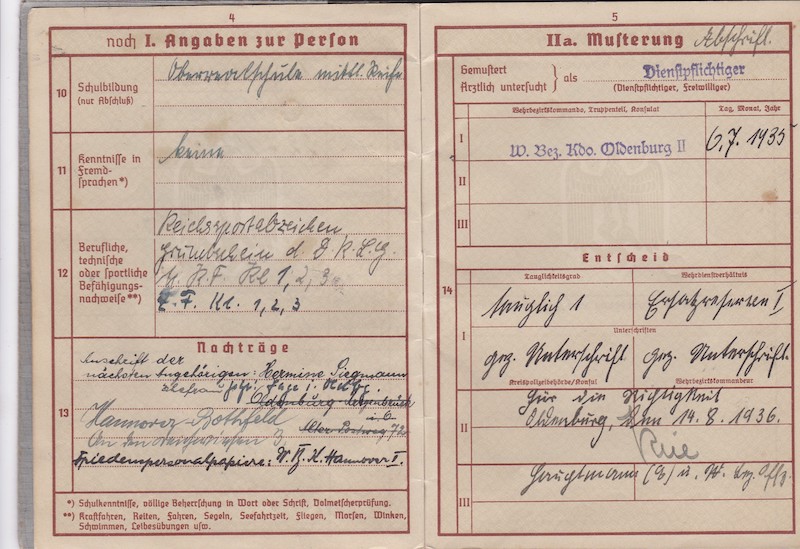 4
noch I. Angaben zur Person
10
Schulbildung
(nur Abschluß)
Oberrealschule mittl. Reife
11
Kenntnisse in
Fremd-
sprachen*)
keine
12
Berufliche,
technische
oder sportliche
Befähigungs-
nachweise**)
Reichssportabzeichen
Grundschein d. D.R.L.G.
K.F. Kl 1, 2, 3
E.F. Kl. 1, 2, 3
Nachträge
13
Anschrift der
nächsten Angehörigen: Hermine Siegmann
Ehefrau i. Oldbg.
Oldenburg
Alter Postweg 72
Hannover-Bothfeld
An den 3
Friedenspersonalpapiere: W.B.K. Hannover I.
*) Schulkenntnisse, völlige Beherrschung in Wort oder Schrift, Dolmetscherprüfung.
**) Kraftfahren, Reiten, Fahren, Segeln, Seefahrtzeit, Fliegen, Morsen, Winken,
Schwimmen, Leibesübungen usw.
5
IIa. Musterung Abschrift.
Gemustert
Ärztlich untersucht
als
Dienstpflichtiger
(Dienstpflichtiger, Freiwilliger)
Wehrbezirkskommando, Truppenteil, Konsulat
Tag, Monat, Jahr
I
W. Bez. Kdo. Oldenburg II
6.7. 1935
II
III
Entscheid
14
Tauglichkeitsgrad
Wehrdienstverhältnis
I
tauglich 1
Ersatzreserve I
Unterschriften
gez. Unterschrift
gez. Unterschrift.
Kreispolizeibehörde/Konsul
Wehrbezirkskommandeur
II
Für die Richtigkeit
Oldenburg, den 14.8.1936.
Hauptmann (E) u. W. Bez. Offz.
III